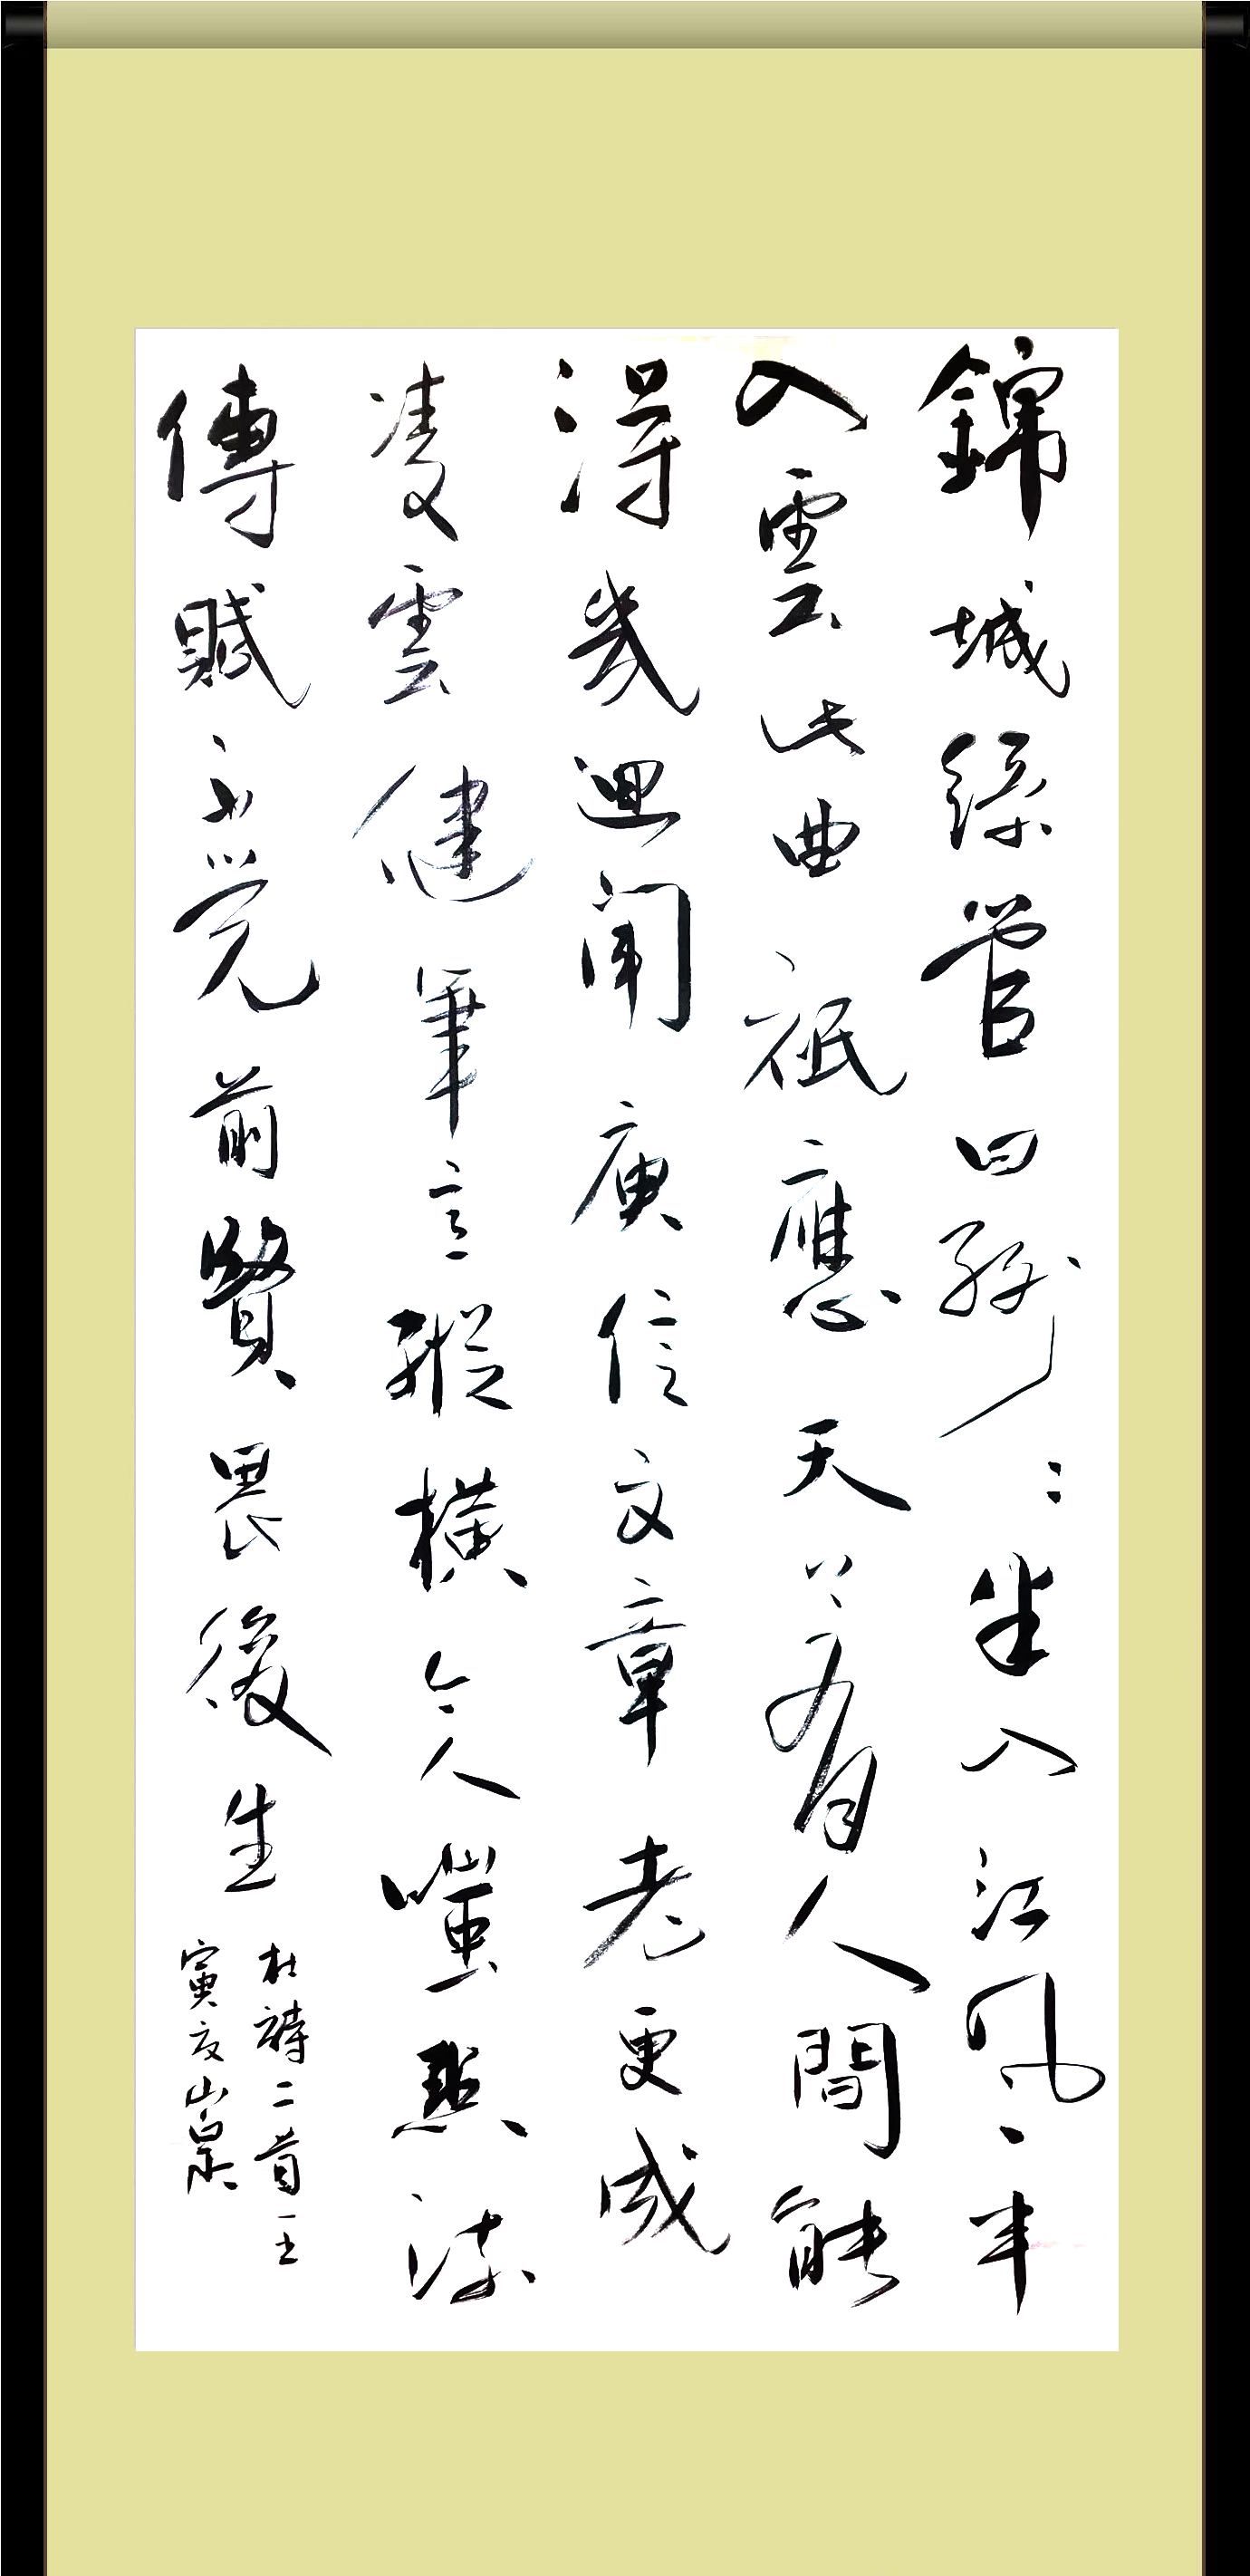 錦城絲管日紛〻半入江風半
入雲此曲祇應天上有人間能
得幾迴聞庾信文章老更成
凌雲健筆意縱橫今人嗤點流
傳賦不覺前賢畏後生
杜詩二首壬
寅夏山泉